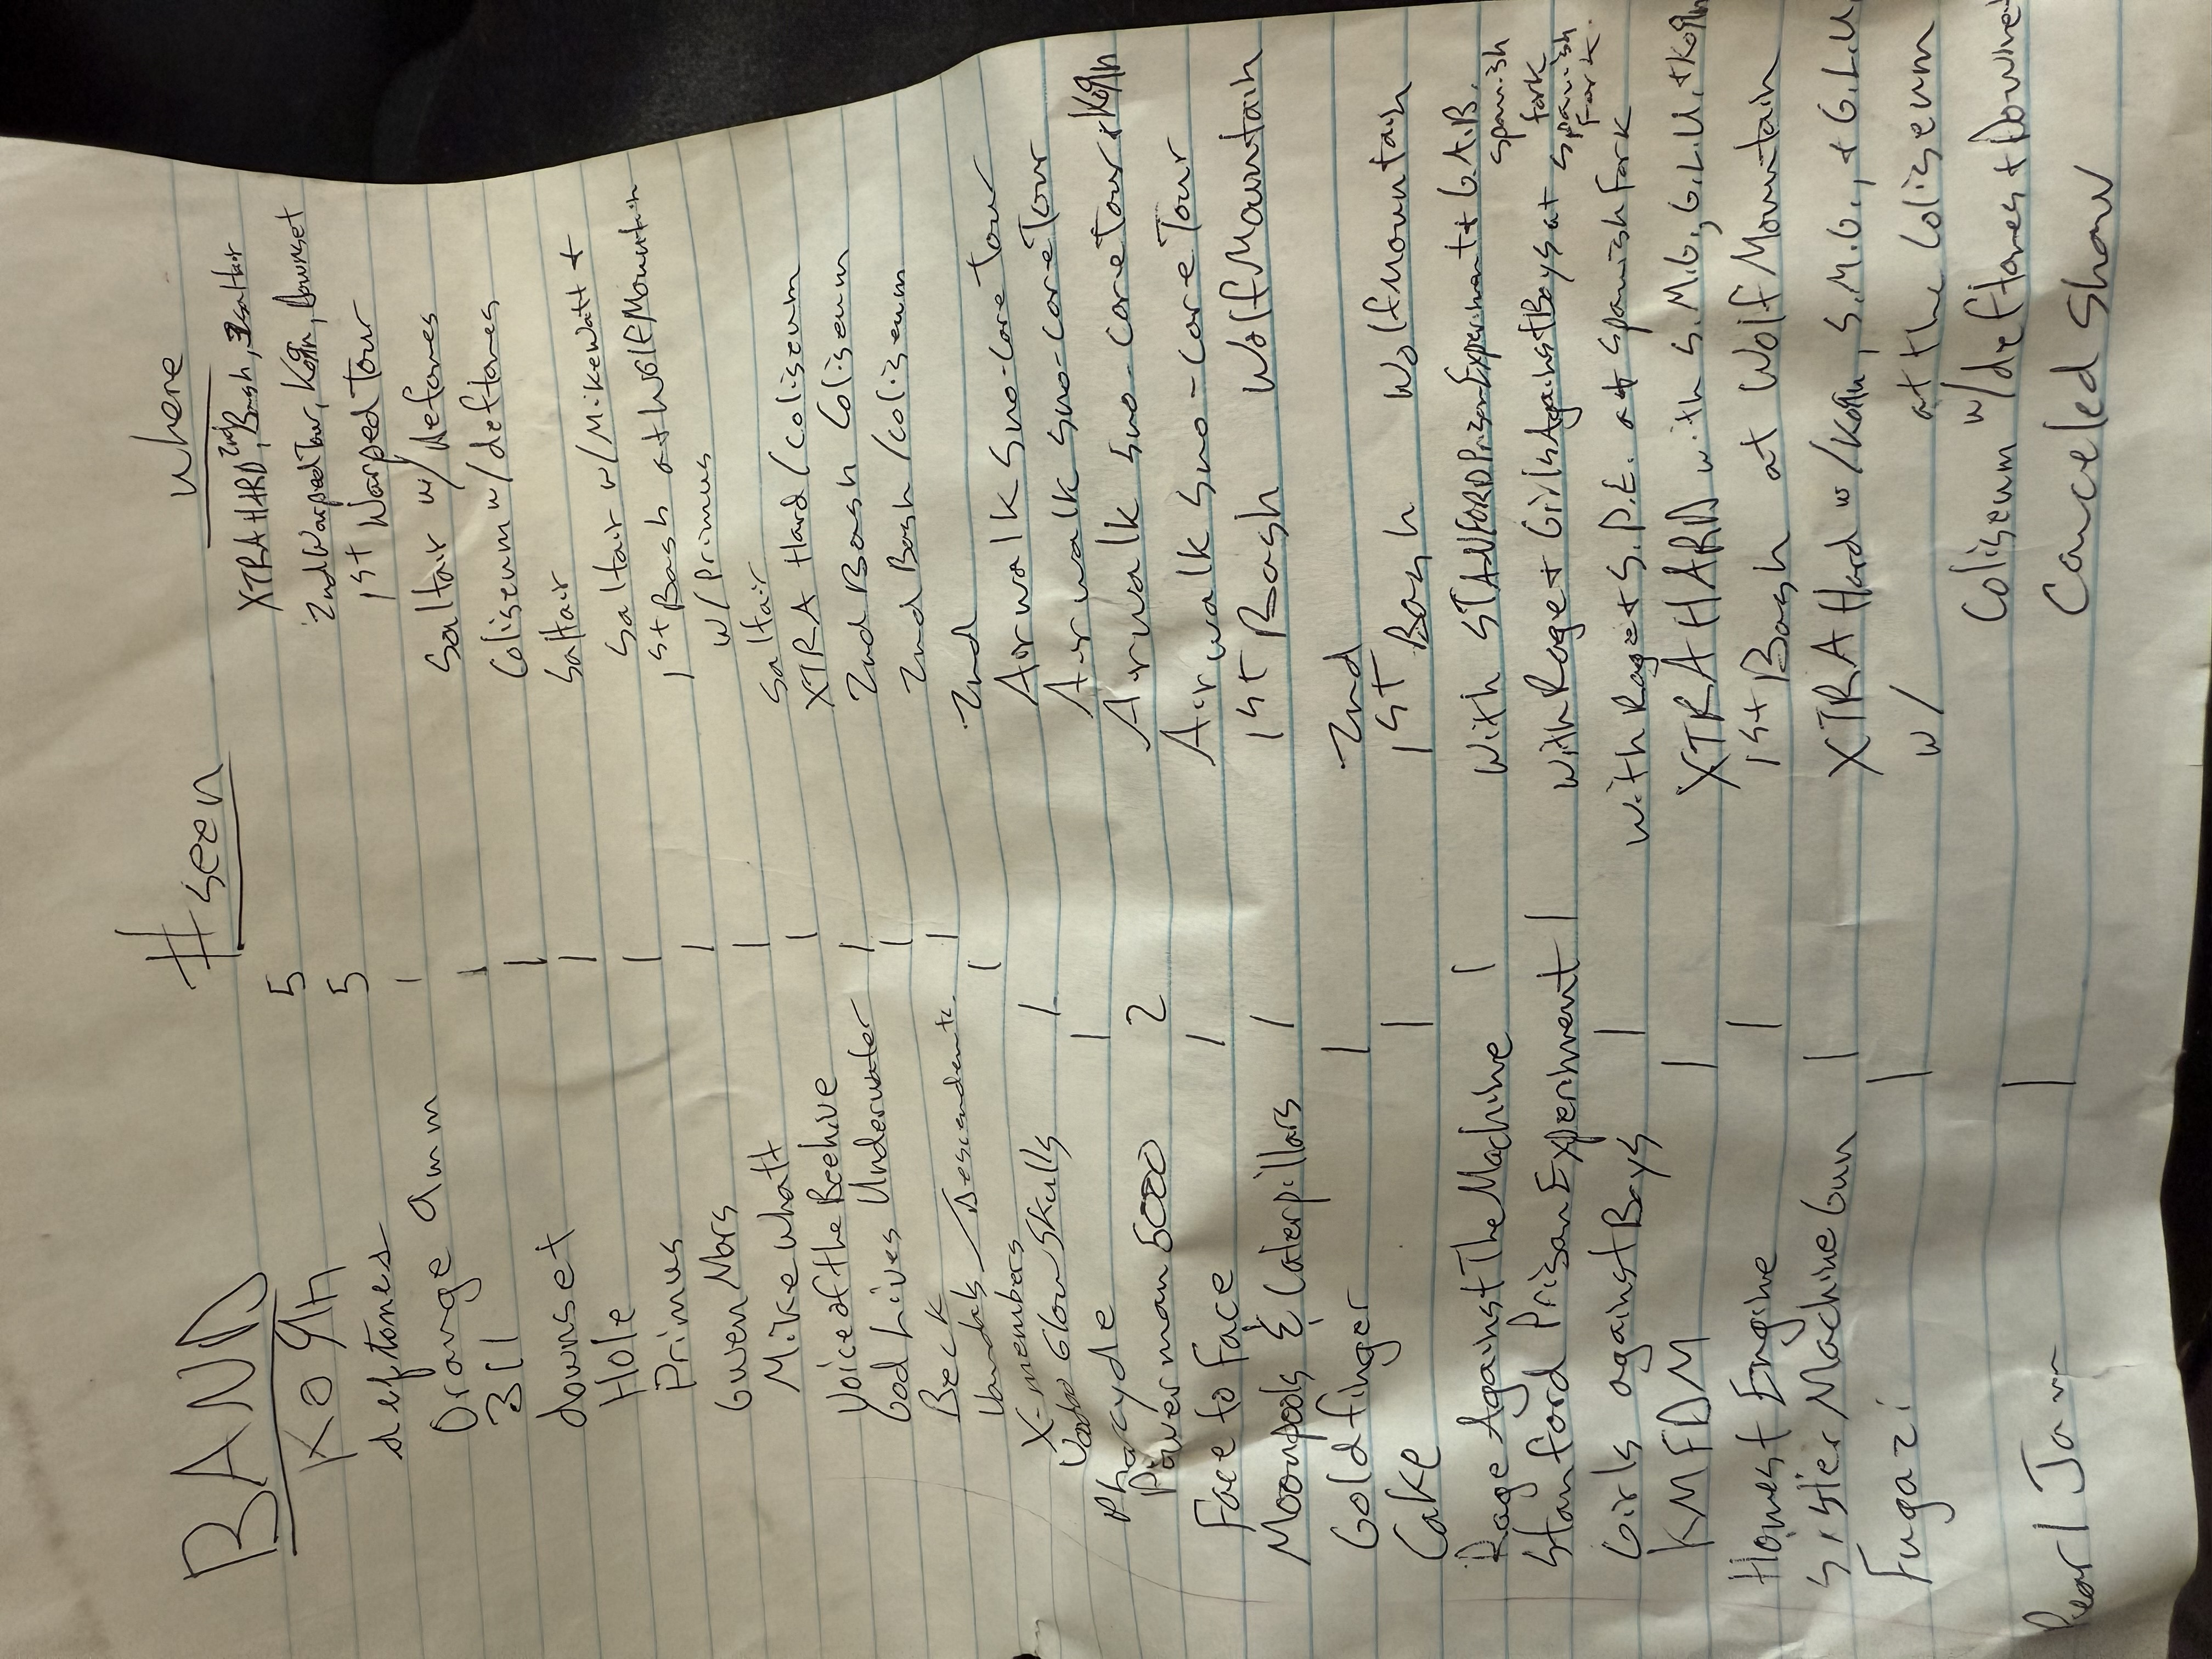 BAND #seen where
KoЯn 5 XTRA HARD, 2nd Bash, Saltair
deftones 5 2nd Warped Tour, KoЯn, downset
Orange 9mm 1 1st Warped Tour
311 1 Saltair w/deftones
downset 1 Coliseum w/deftones
Hole 1 Saltair
Primus 1 Saltair w/Mikewatt +
Gwen Mars 1 1st Bash at Wolf Mountain
Mike whatt 1 w/Primus
Voice of the Beehive 1 Saltair
God Lives Underwater 1 XTRA Hard/Coliseum
Beck 1 2nd Bash Coliseum
Vandals / Descendents 1 2nd Bash/Coliseum
X-members 1 2nd
Voodoo Glow Skulls 1 Airwalk Sno-Core Tour
Pharcyde 1 Airwalk Sno-Core Tour
Powerman 5000 2 Airwalk Sno-Core Tour, KoЯn
Face to Face 1 Airwalk Sno-Core Tour
Moonpools & Caterpillars 1 1st Bash Wolf Mountain
Goldfinger 1 2nd
Cake 1 1st Bash Wolf Mountain
Rage Against The Machine 1 With STANFORD Prison Experiment + G.A.B. Spanish Fork
Stanford Prison Experiment 1 With Rage + Girls Against Boys at Spanish Fork.
Girls against Boys 1 with Rage + S.P.E. at Spanish Fork
KMFDM 1 XTRA HARD with S.M.G., G.L.U. + KoЯn
Honest Engine 1 1st Bash at Wolf Mountain
Sister Machine Gun 1 XTRA Hard w/KoЯn, S.M.G., + G.L.U.
Fugazi 1 w/ at the Coliseum
Coliseum w/deftones + Downset
Pearl Jam 1 Canceled Show